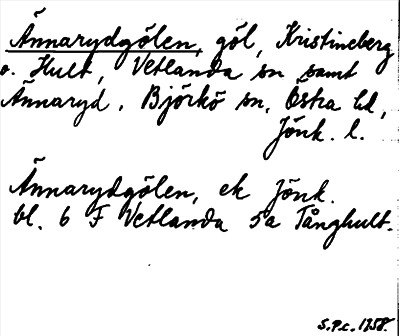 Ännarydgölen, göl, Kristineberg
o. Hult, Vetlanda sn samt
Ännaryd, Björkö sn, Östra hd,
Jönk. l.
Ännarydgölen, ek Jönk.
bl. 6 F Vetlanda 5a Tånghult.
S.P.c. 1958.